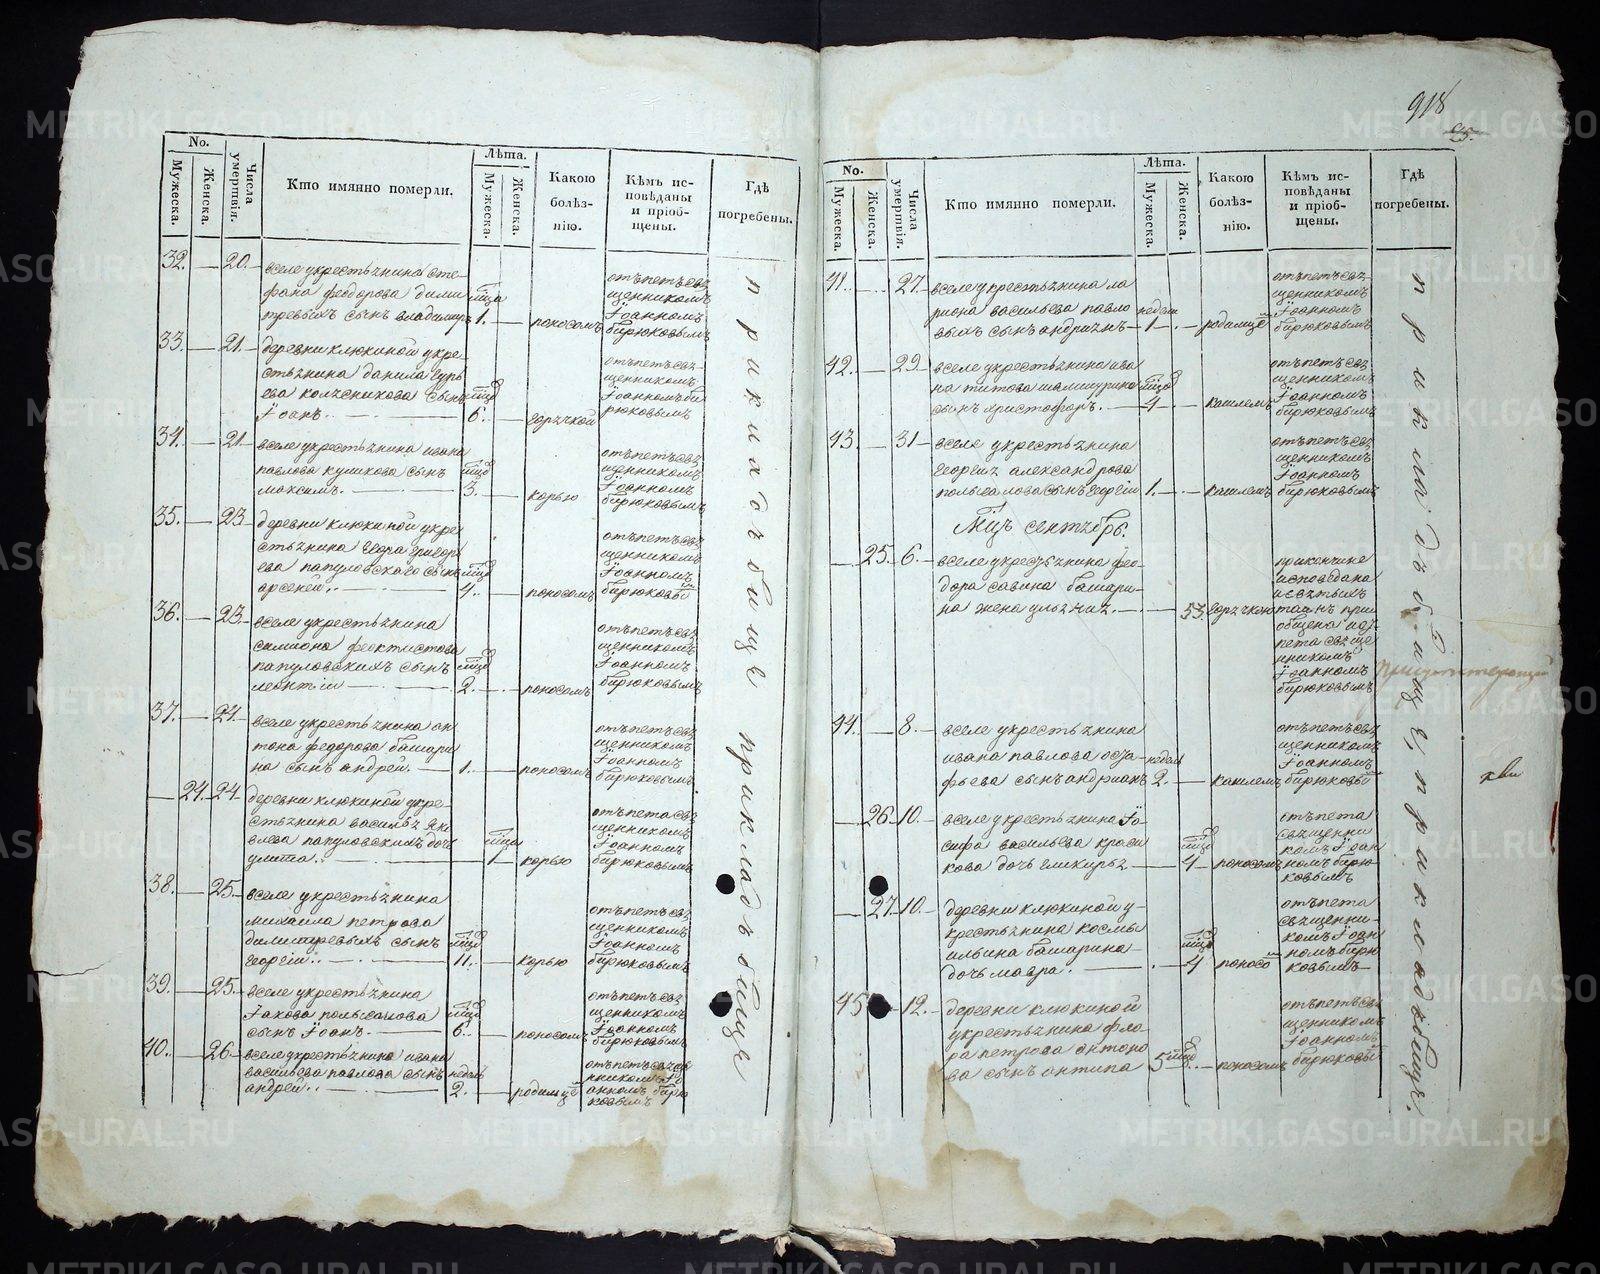 918
95.
No.
Мужеска.
Женска.
Числа умертвія.
Кто имянно померли.
Лѣта.
Мужеска.
Женска.
Какою
болѣз-
нію.
Кѣмъ ис-
повѣданы
и пріоб-
щены.
Гдѣ
погребены.
32. — 20. вселе укрестьянина сте-
фана феодорова дими
тревыхъ сынъ владимиръ
мца 1. — поносомъ
отъпетъ свя
щенникомъ
Iоанномъ
бирюковымъ
33. — 21. деревни клюкиной укре-
стьянина данила гурь
ева колясникова сынъ
Iоанъ.
мцов 6. — горячкой
отъпетъ свя-
щенникомъ
Iоанномъ би
рюковымъ
34. — 21. вселе укрестьянина ивана
павлова кушкова сынъ
максимъ.
мцов 3. — корью
отъпетъ свя
щенникомъ
Iоанномъ
бирюковымъ
35. — 23. деревни клюкиной укре
стьянина егора григорь
ева папуловскаго сынъ
арсеней.
мцов 4. — поносомъ
отъпетъ свя
щенникомъ
Iоанномъ
бирюковы
36. — 23. вселе укрестьянина
симиона феоктистова
папуловскихъ сынъ
леонтіи
мцов 2. — поносомъ
отъпетъ свя
щенникомъ
Iоанномъ
бирюковымъ
37. — 24. вселе укрестьянина ан
тона федорова башари
на сынъ андрей. — 1. — поносомъ
отъпетъ свя
щенникомъ
Iоанномъ
бирюковымъ.
— 24. 24. деревни клюкиной укре-
стьянина василья
папуловскихъ дочь
улита.
мцов 1 корью
отъпета свя
щенникомъ
Iоанномъ
бирюковымъ
38. — 25. вселе укрестьянина
михаила петрова
димитревыхъ сынъ
георгіи.
мцов 11. — корью
отъпетъ свя
щенникомъ
Iоанномъ
бирюковымъ
39. — 25. вселе укрестьянина
Iакова полысалова
сынъ Iоанъ.
мцов 6. — поносомъ
отъпетъ свя
щенникомъ
Iоанномъ
бирюковымъ
40. — 26 вселе укрестьянина ивана
васильева павлова сынъ
андрей.
недель 2. — родимце
отъпетъ свяще
нникомъ Iо
анномъ бирю
ковымъ
приходъбище прикладъбище
No.
Мужеска.
Женска.
Числа умертвія.
Кто имянно померли.
Лѣта.
Мужеска.
Женска.
Какою
болѣз-
нію.
Кѣмъ ис-
повѣданы
и пріоб-
щены.
Гдѣ
погребены.
41. 27 вселе укрестьянина ла
риона васильева павло
выхъ сынъ андриянъ
недели 1. — родимце
отъпетъ свя-
щенникомъ
Iоанномъ
бирюковымъ
42. — 29 вселе укрестьянина ива
на титова шамшурина
сынъ христофоръ.
мцов 4 — кашлемъ
отъпетъ свя
щенникомъ
Iоанномъ
бирюковымъ
43. — 31 вселе укрестьянина
георгия александрова
полысалова сынъ георгіи 1. — кашлемъ
отъпетъ свя
щенникомъ
Iоанномъ
бирюковымъ
Мцъ сентябрь.
— 25. 6. вселе укрестьянина фео
дора савина башари-
на жена ульяния. — 53 горячкою
прикончине
исповедана
исвятыхъ
таинъ прио
общена
пета свяще
нникомъ
Iоанномъ
бирюковымъ
44. — 8. вселе укрестьянина
ивана павлова
фьева сынъ андрианъ
недель 2. — кашлемъ
отъпетъ свя
щенникомъ
Iоанномъ
бирюковы
— 26. 10. вселе укрестьянина Iо-
сифа васильева краси
кова дочь гликерья
мцов 4 поносомъ
отъпета
священни
комъ Iоан
номъ бирю
ковымъ
— 27. 10. деревни клюкиной у-
крестьянина космы
ильина башарина
дочь мавра.
мцов 4 поносо
отъпета
священни-
комъ Iоан
номъ бирю
ковымъ
45. 12. деревни клюкиной
укрестьянина фла
ра петрова антоно
ва сынъ антипа
5 мцов — поносомъ
отъпетъ свя
щенникомъ
Iоанномъ
бирюковы
прикладъбище, прикладбище.
METRIKI.GASO-URAL.RU